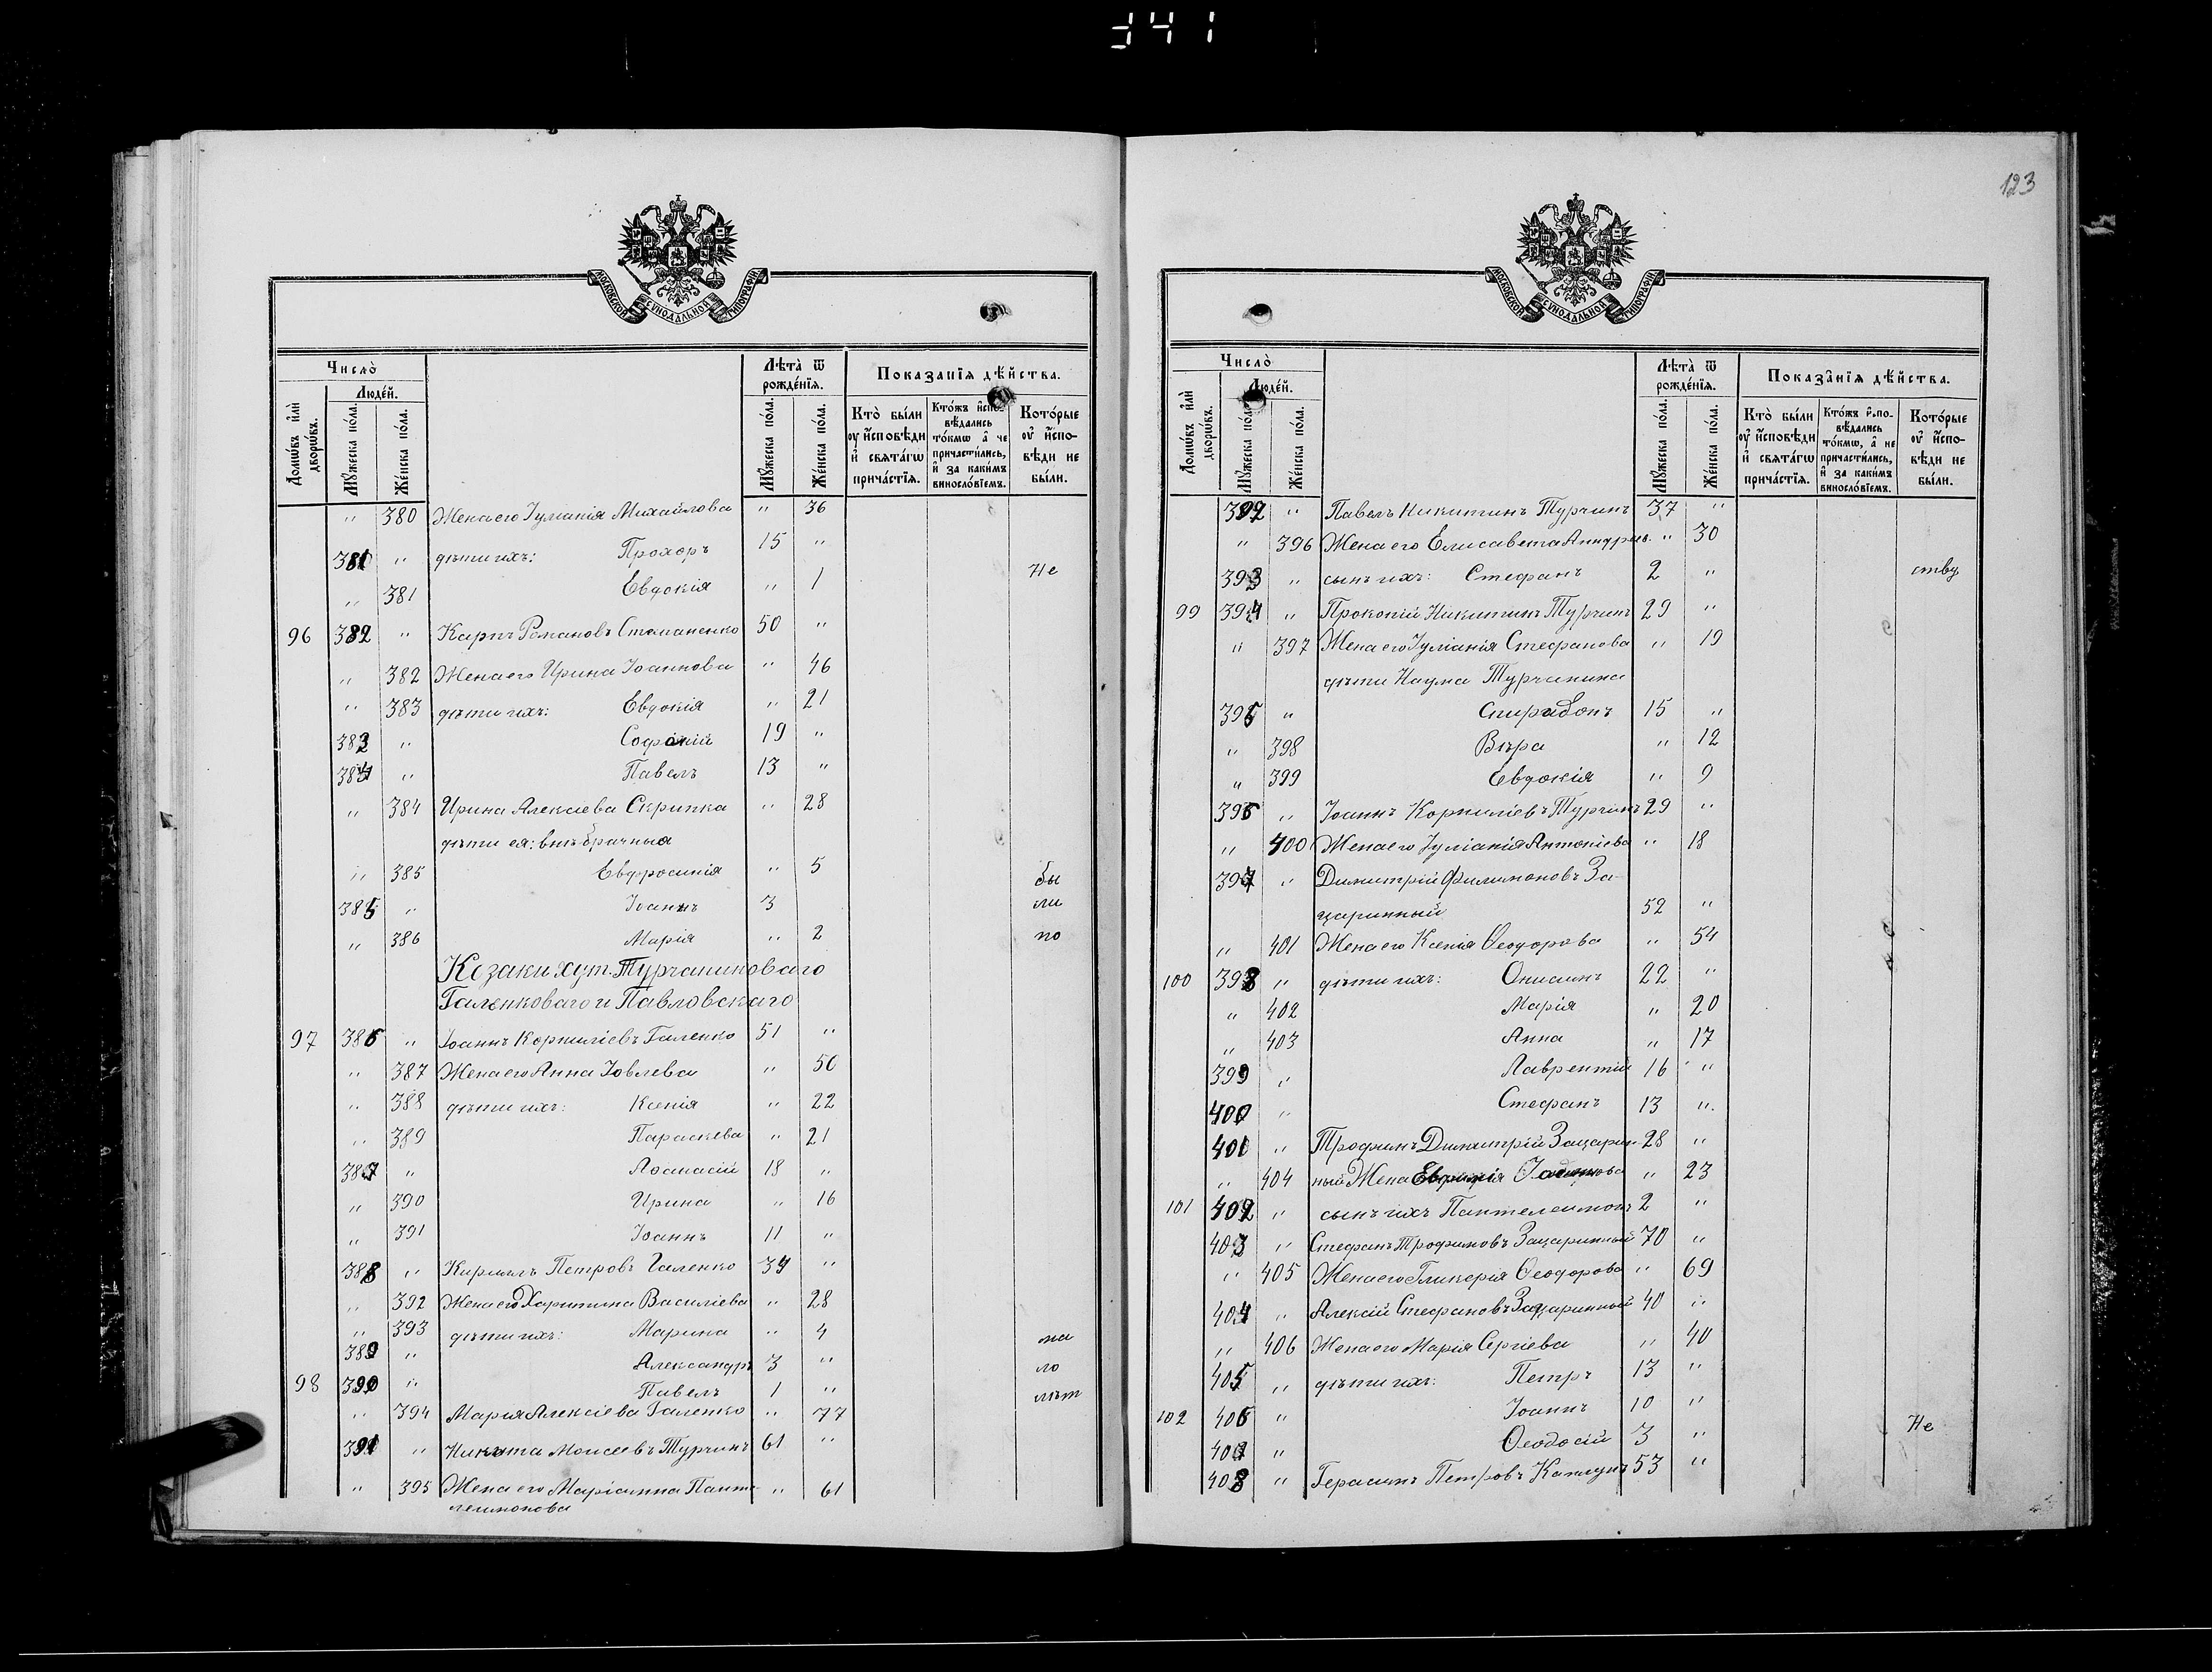 341
МОСКОВСКОЙ СѴНОДАЛЬНОЙ ТИПОГРАФІИ
Число̀
Домѡ́въ и҆лѝ дворѡ́въ.
Люде́й.
Мꙋ́жеска по́ла.
Же́нска по́ла.
Лѣ́та ѿ рожде́нїѧ.
Мꙋ́жеска по́ла.
Же́нска по́ла.
Показа́нїѧ дѣ́йства.
Кто̀ бы́ли оу҆ и҆́сповѣди и҆ свѧта́гѡ прича́стїѧ.
Кто́жъ и҆спо- вѣ́дались то́кмѡ а҆ не причасти́лись, и҆ за каки́мъ винословїемъ.
Кото́рые оу҆ и҆́спо- вѣди не бы́ли.
" 380 Жена его Іуліанія Михайлова " 36
381 " дѣти ихъ: Прохоръ 15 "
" 381 Евдокія " 1 Не
96 382 " Карпъ Романовъ Степаненко 50 "
" 382 Жена его Ирина Іоаннова " 46
" 383 дѣти ихъ: Евдокія " 21
383 " Софоній 19 "
384 " Павелъ 13 "
" 384 Ирина Алексіева Скрипка " 28
дѣти ея: внѣбрачныя
" 385 Евфросинія " 5 бы
385 " Іоаннъ 3 ли
" 386 Марія " 2 по
Козаки хут. Турчаниноваго
Галенковаго и Павловскаго
97 386 " Іоаннъ Корниліевъ Галенко 51 "
" 387 Жена его Анна Іовлева " 50
" 388 дѣти ихъ: Ксенія " 22
" 389 Параскева " 21
387 " Аѳанасій 18 "
" 390 Ирина " 16
" 391 Іоаннъ 11 "
388 " Кириллъ Петровъ Галенко 34 "
" 392 Жена его Харитина Василіева " 28
" 393 дѣти ихъ: Марина " 4 ма
389 " Александръ 3 " ло
98 390 " Павелъ 1 " лѣт
" 394 Марія Алексіева Галенко " 77
391 " Никита Моисеевъ Турчинъ 61 "
" 395 Жена его Маріанна Панте- " 61
леимонова
123
МОСКОВСКОЙ СѴНОДАЛЬНОЙ ТИПОГРАФІИ
Число̀
Домѡ́въ и҆лѝ дворѡ́въ.
Люде́й.
Мꙋ́жеска по́ла.
Же́нска по́ла.
Лѣ́та ѿ рожде́нїѧ.
Мꙋ́жеска по́ла.
Же́нска по́ла.
Показа́нїѧ дѣ́йства.
Кто̀ бы́ли оу҆ и҆́сповѣди и҆ свѧта́гѡ прича́стїѧ.
Кто́жъ и҆спо- вѣ́дались то́кмѡ, а҆ не причасти́лись, и҆ за каки́мъ винословїемъ.
Кото́рые оу҆ и҆́спо- вѣди не бы́ли.
392 " Павелъ Никитинъ Турчинъ 37 "
" 396 Жена его Елисавета Андреев. " 30
393 " сынъ ихъ: Стефанъ 2 " ству
99 394 " Прокопій Никитинъ Турчинъ 29 "
" 397 Жена его Іуліанія Стефанова " 19
дѣти Наума Турчинина
395 " Спиридонъ 15 "
" 398 Вѣра " 12
" 399 Евдокія " 9
396 " Іоаннъ Корниліевъ Турчинъ 29 "
" 400 Жена его Іуліанія Антоніева " 18
397 " Димитрій Филимоновъ За-
царинный 52 "
" 401 Жена его Ксенія Ѳеодорова " 54
100 398 " дѣти ихъ: Онисимъ 22 "
" 402 Марія " 20
" 403 Анна " 17
399 " Лаврентій 16 "
400 " Стефанъ 13 "
401 " Трофимъ Димитрій Зацарин- 28 "
" 404 ный Жена " 23
101 402 " сынъ ихъ Пантелеимонъ 2 "
403 " Стефанъ Трофимовъ Зацаринный 70 "
" 405 Жена его Гликерія Ѳеодорова " 69
404 " Алексій Стефановъ Зацаринный 40 "
" 406 Жена его Марія Сергіева " 40
405 " дѣти ихъ: Петръ 13 "
102 406 " Іоаннъ 10 "
407 " Ѳеодосій 3 " Не
408 " Герасимъ Петровъ 53 "